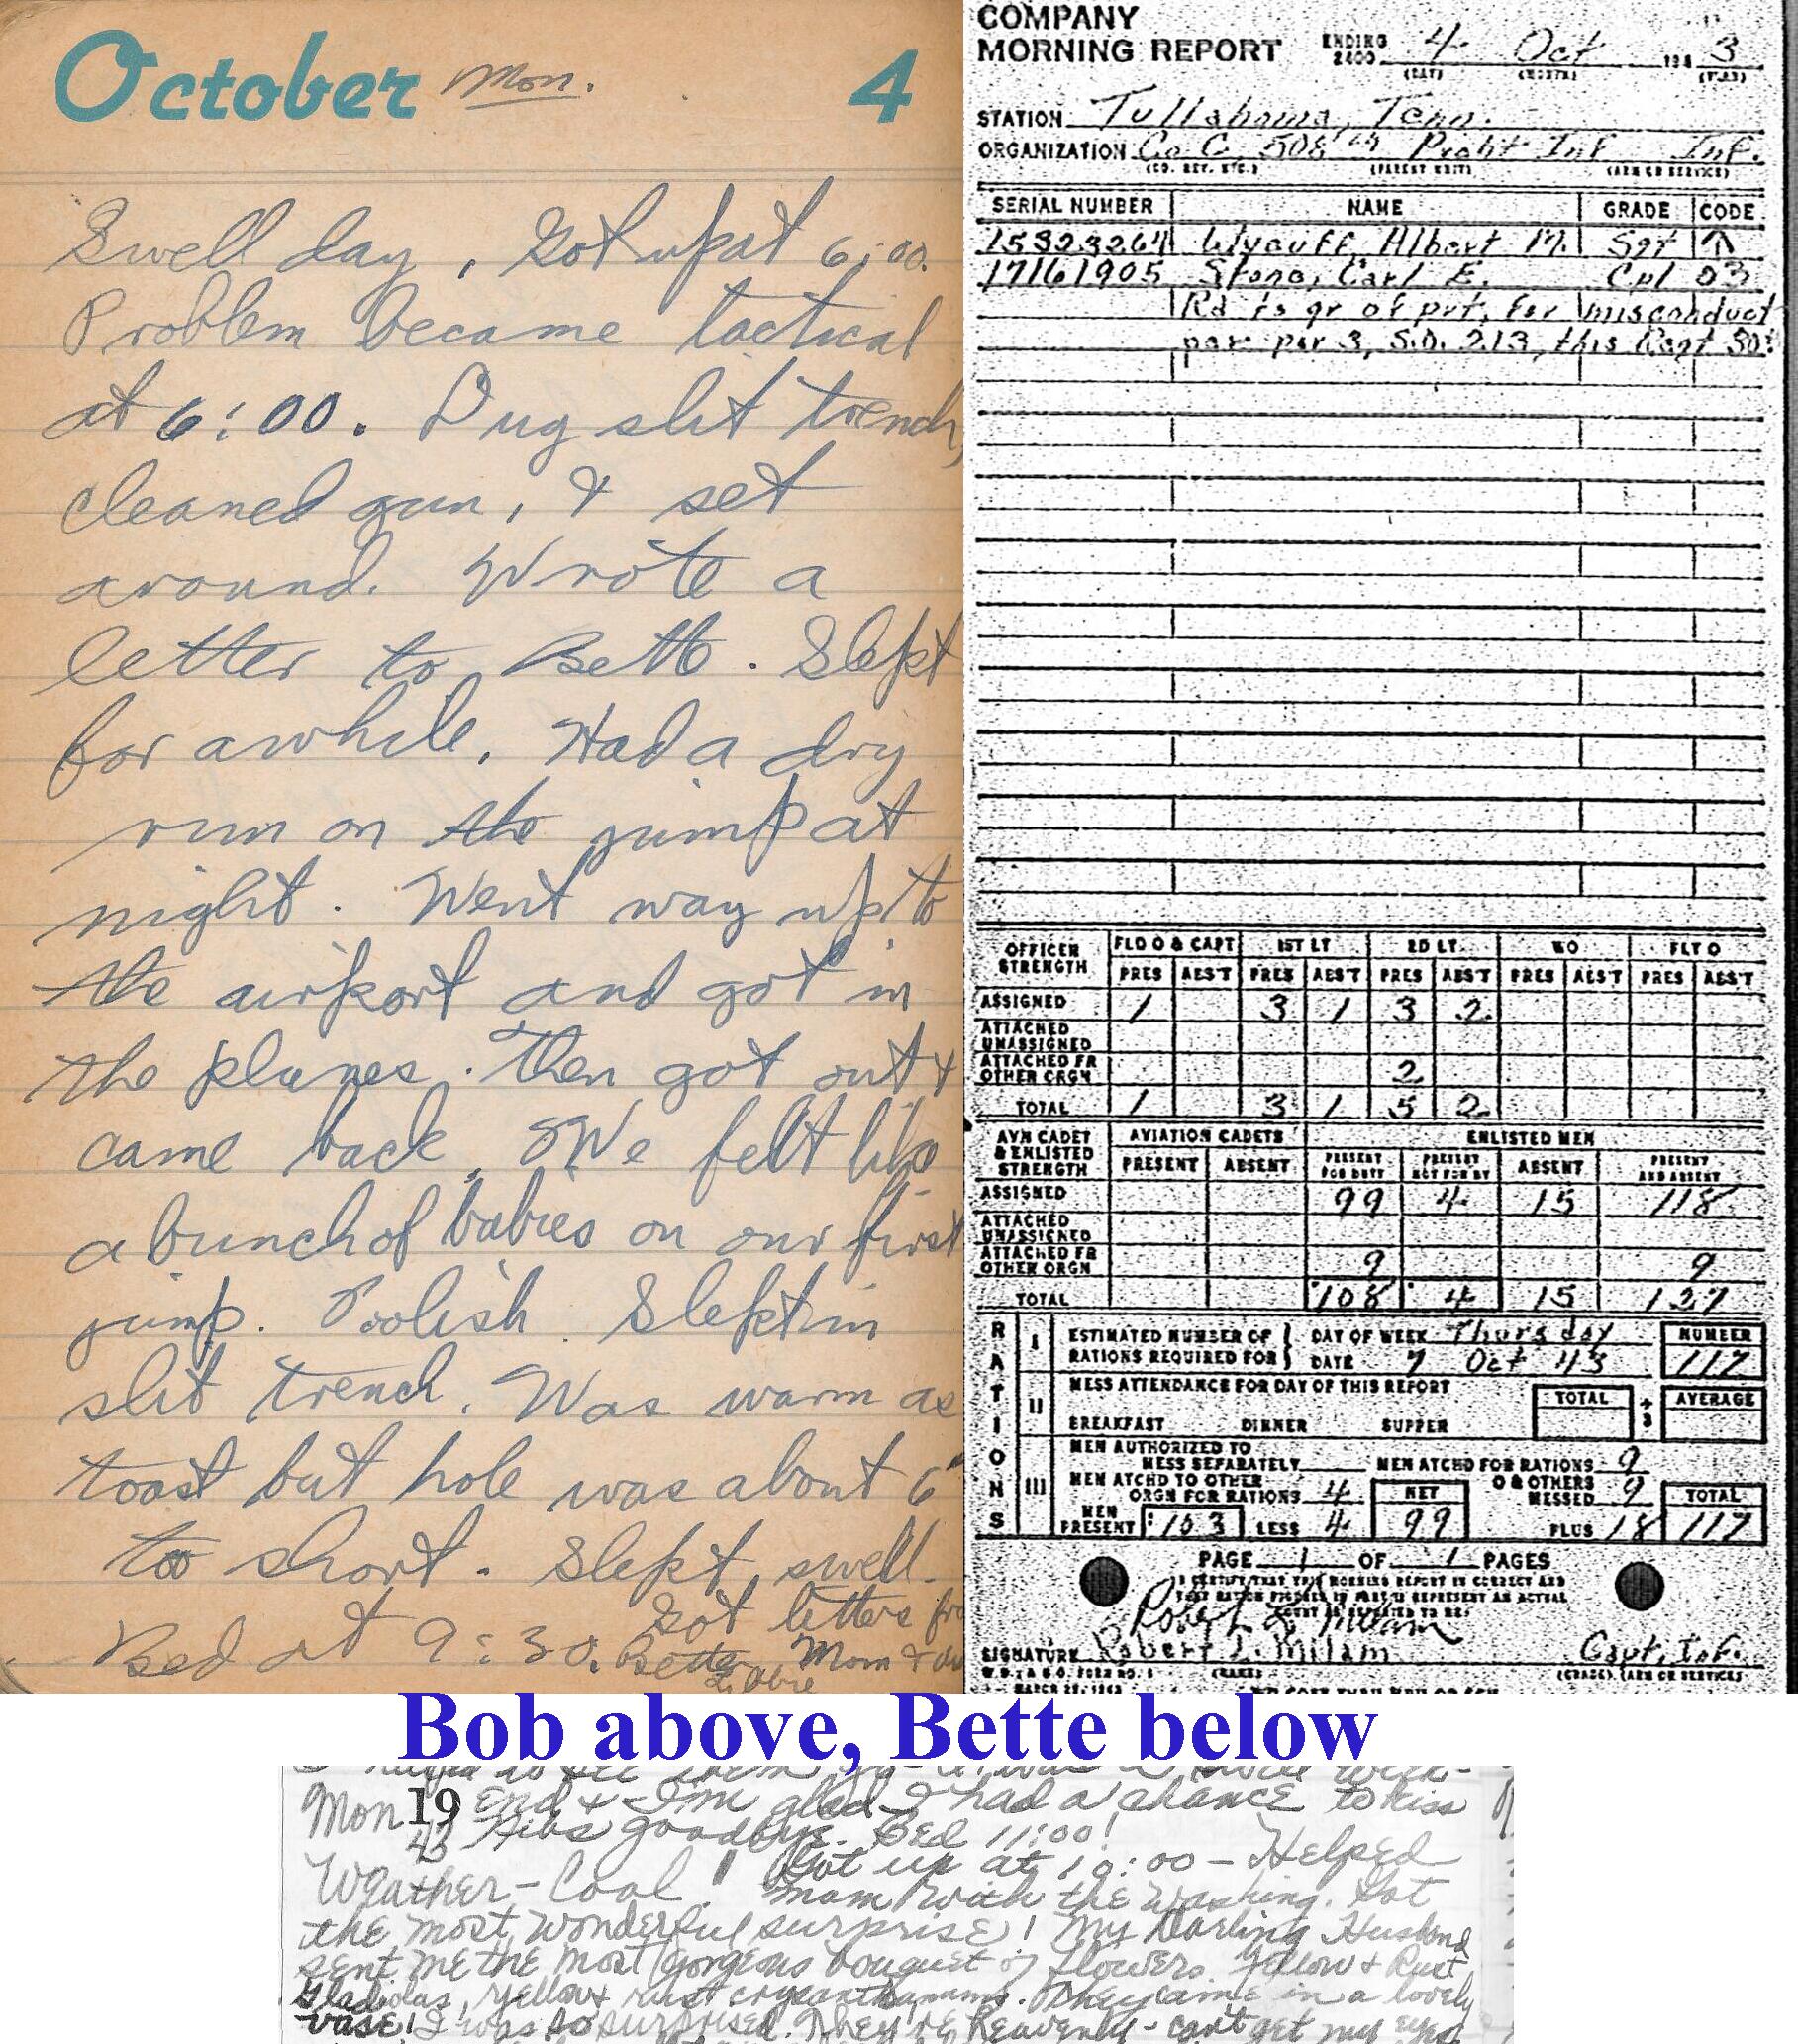 October Mon. 4
Swell day, Got up at 6:00.
Problem became tactical
at 6:00. Dug slit trench,
cleaned gun, & set
around. Wrote a
letter to Bette. Slept
for awhile. Had a dry
run on the jump at
night. Went way up to
the airport and got in
the planes. Then got out &
came back. We felt like
a bunch of babies on our first
jump. Foolish. Slept in
slit trench. Was warm as
toast but hole was about 6"
too short. Slept swell.
Bed at 9:30. Got letters
Bette, Mom &
COMPANY
MORNING REPORT ENDING 2400 4 Oct 194 3
(DAY) (MONTH) (YEAR)
STATION Tullahoma, Tenn.
ORGANIZATION Co C 508th Precht Inf Inf.
(CO. BTY. ETC.) (PARENT UNIT) (ARM OR SERVICE)
SERIAL NUMBER NAME GRADE CODE
15323264 Wycuff, Albert M. Sgt
17161905 Stone, Carl E. Cpl 03
Rd to gr of pvt, for misconduct
par 3, S.O. 213, this Regt
OFFICER STRENGTH FLD O & CAPT 1ST LT 2D LT WO FLT O
PRES ABS'T PRES ABS'T PRES ABS'T PRES ABS'T PRES ABS'T
ASSIGNED 1 3 1 3 2
ATTACHED UNASSIGNED
ATTACHED FR OTHER ORGN 2
TOTAL 1 3 1 5 2
AVN CADET & ENLISTED STRENGTH AVIATION CADETS ENLISTED MEN
PRESENT ABSENT PRESENT FOR DUTY PRESENT NOT FOR DY ABSENT PRESENT AND ABSENT
ASSIGNED 99 4 15 118
ATTACHED UNASSIGNED
ATTACHED FR OTHER ORGN 9 9
TOTAL 108 4 15 127
RATIONS
I ESTIMATED NUMBER OF RATIONS REQUIRED FOR DAY OF WEEK Thursday NUMBER
DATE 7 Oct 43 117
II MESS ATTENDANCE FOR DAY OF THIS REPORT TOTAL ÷ 3 AVERAGE
BREAKFAST DINNER SUPPER
III MEN AUTHORIZED TO MESS SEPARATELY MEN ATCHD FOR RATIONS 9
MEN ATCHD TO OTHER ORGN FOR RATIONS 4 NET O & OTHERS MESSED 9 TOTAL
MEN PRESENT 103 LESS 4 99 PLUS 18 117
PAGE 1 OF 1 PAGES
I CERTIFY THAT THIS MORNING REPORT IS CORRECT AND
Robert L Milam
SIGNATURE Robert L. Milam Capt, Inf.
(NAME) (GRADE) (ARM OR SERVICE)
Bob above, Bette below
Mon 19 End & I'm glad I had a chance to kiss
43 goodbye. Bed 11:00!
Weather - Cool! Got up at 10:00 - Helped
Mom with the washing. Got
the most wonderful surprise! My Darling Husband
sent me the most gorgeous bouquet of flowers. Yellow & Rust
Gladiolas, yellow & rust crysanthamums. They came in a lovely
vase! I was so surprised. They're Heavenly - can't get my eyes